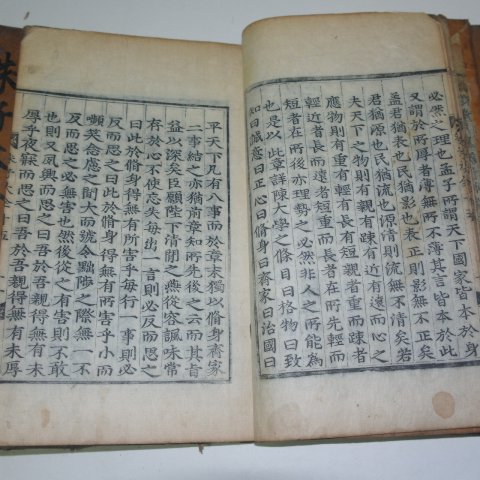 必然之理也孟子所謂天下國家皆本於身
又謂於所厚者薄無所不薄其言皆本於此
盖君猶表也民猶影也表正則影無不正矣
君猶源也民猶流也源清則流無不清矣若
夫天下之物則有親有疎有近有遠而心之
應物則有重有輕有長有短親者重而疎者
輕近者長而遠者短重而長者在所先輕而
短者在所後亦理勢之必然非人之所能為
也是以此章詳陳大學之條目曰格物曰致
知曰誠意曰正心曰脩身曰齊家曰治國曰
平天下凡有八事而於章末獨以脩身齊家
二事結之亦猶前章知所先後之云而其旨
益以深矣臣願陛下清閒之燕從容諷味常
存於心不使忘失每出一言則必反而思之
曰此於脩身得無有所害乎每行一事則必
反而思之曰此於脩身得無有所害乎小而
嚬笑念慮之間大而號令黜陟之際無一不
反而思之必無害也然後從之有害則不敢
也則又夙興而思之曰吾於吾親得無有未
厚乎夜寐而思之曰吾於吾親得無有未厚
朱子